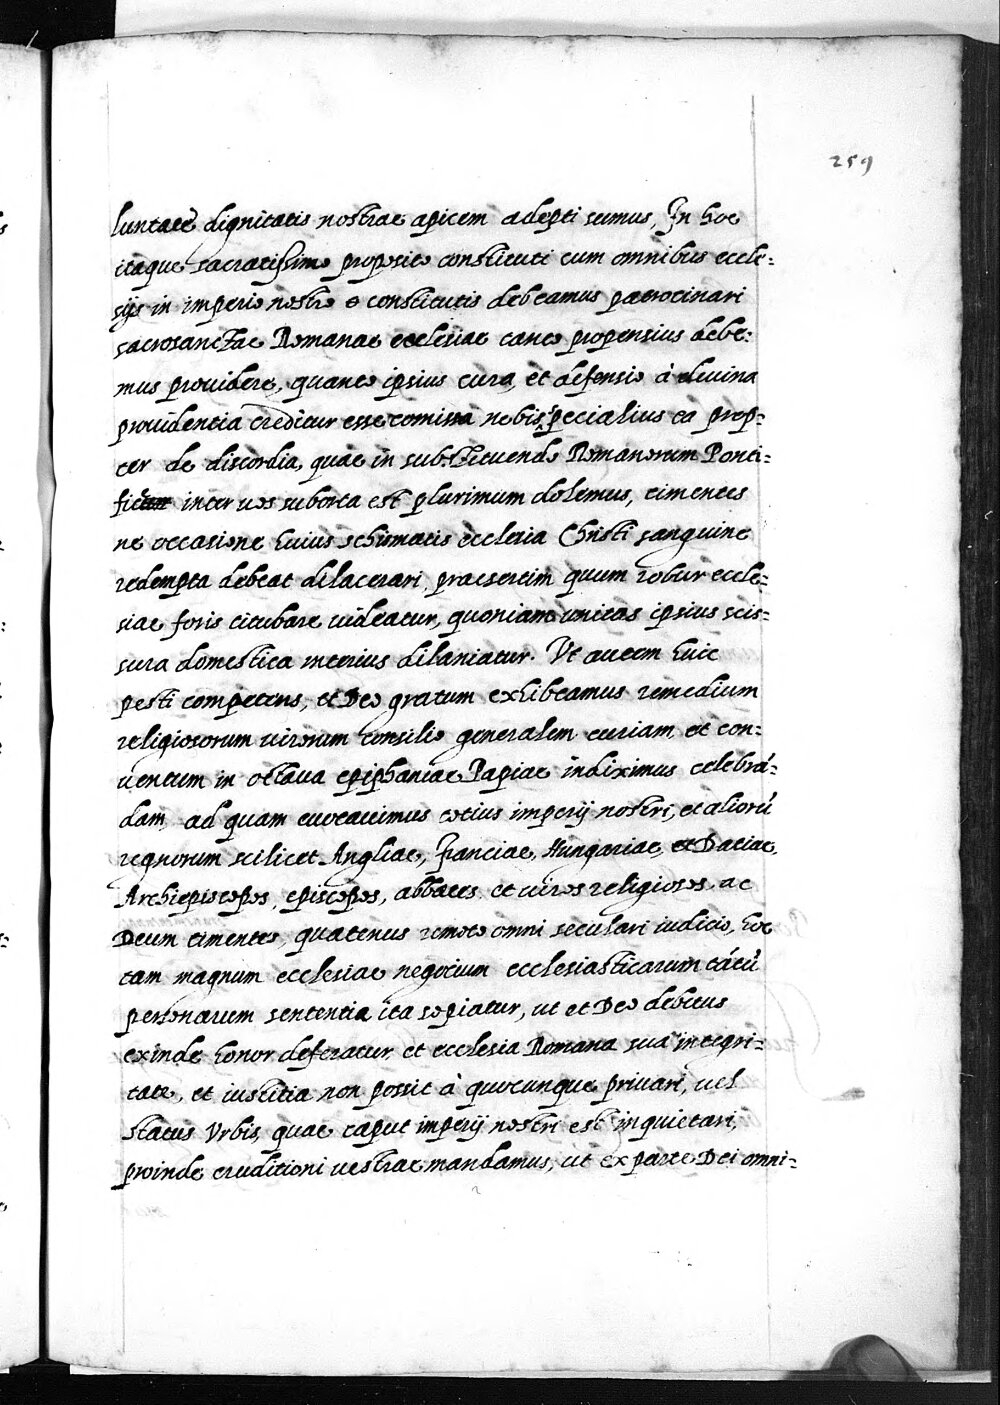 259
luntate dignitatis nostrae apicem adepti sumus, In hoc
itaque sacratissimo proposito constituti cum omnibus eccle-
sijs in imperio nostro constitutis debeamus patrocinari
sacrosanctae Romanae ecclesiae tanto propensius debe-
mus prouidere, quanto ipsius cura, et defensio à diuina
prouidentia creditur esse comissa nobis specialius ea prop-
ter de discordia, quae in substituendo Romanorum Ponti-
fice inter uos suborta est plurimum dolemus, timentes
ne occasione huius schismatis ecclesia Christi sanguine
redempta debeat dilacerari, praesertim quum robur eccle-
siae foris titubare uideatur, quoniam unitas ipsius scis-
sura domestica interius dilaniatur. Vt autem huic
pesti competens, et Deo gratum exhibeamus remedium
religiosorum uirorum consilio generalem curiam, et con-
uentum in octaua epiphaniae Papiae indiximus celebrá-
dam, ad quam euocauimus totius imperij nostri, et aliorū
regnorum scilicet Angliae, Franciae, Hungariae, et Daciae,
Archiepiscopos, episcopos, abbates, et uiros religiosos, ac
Deum timentes, quatenus remoto omni seculari iudicio, hoc
tam magnum ecclesiae negocium ecclesiasticarum tátū
personarum sententia ita sopiatur, ut et Deo debitus
exinde honor deferatur, et ecclesia Romana sua integri-
tate, et iustitia non possit à quocunque priuari, uel
status Vrbis, quae caput imperij nostri est inquietari,
proinde eruditioni uestrae mandamus, ut ex parte Dei omni-